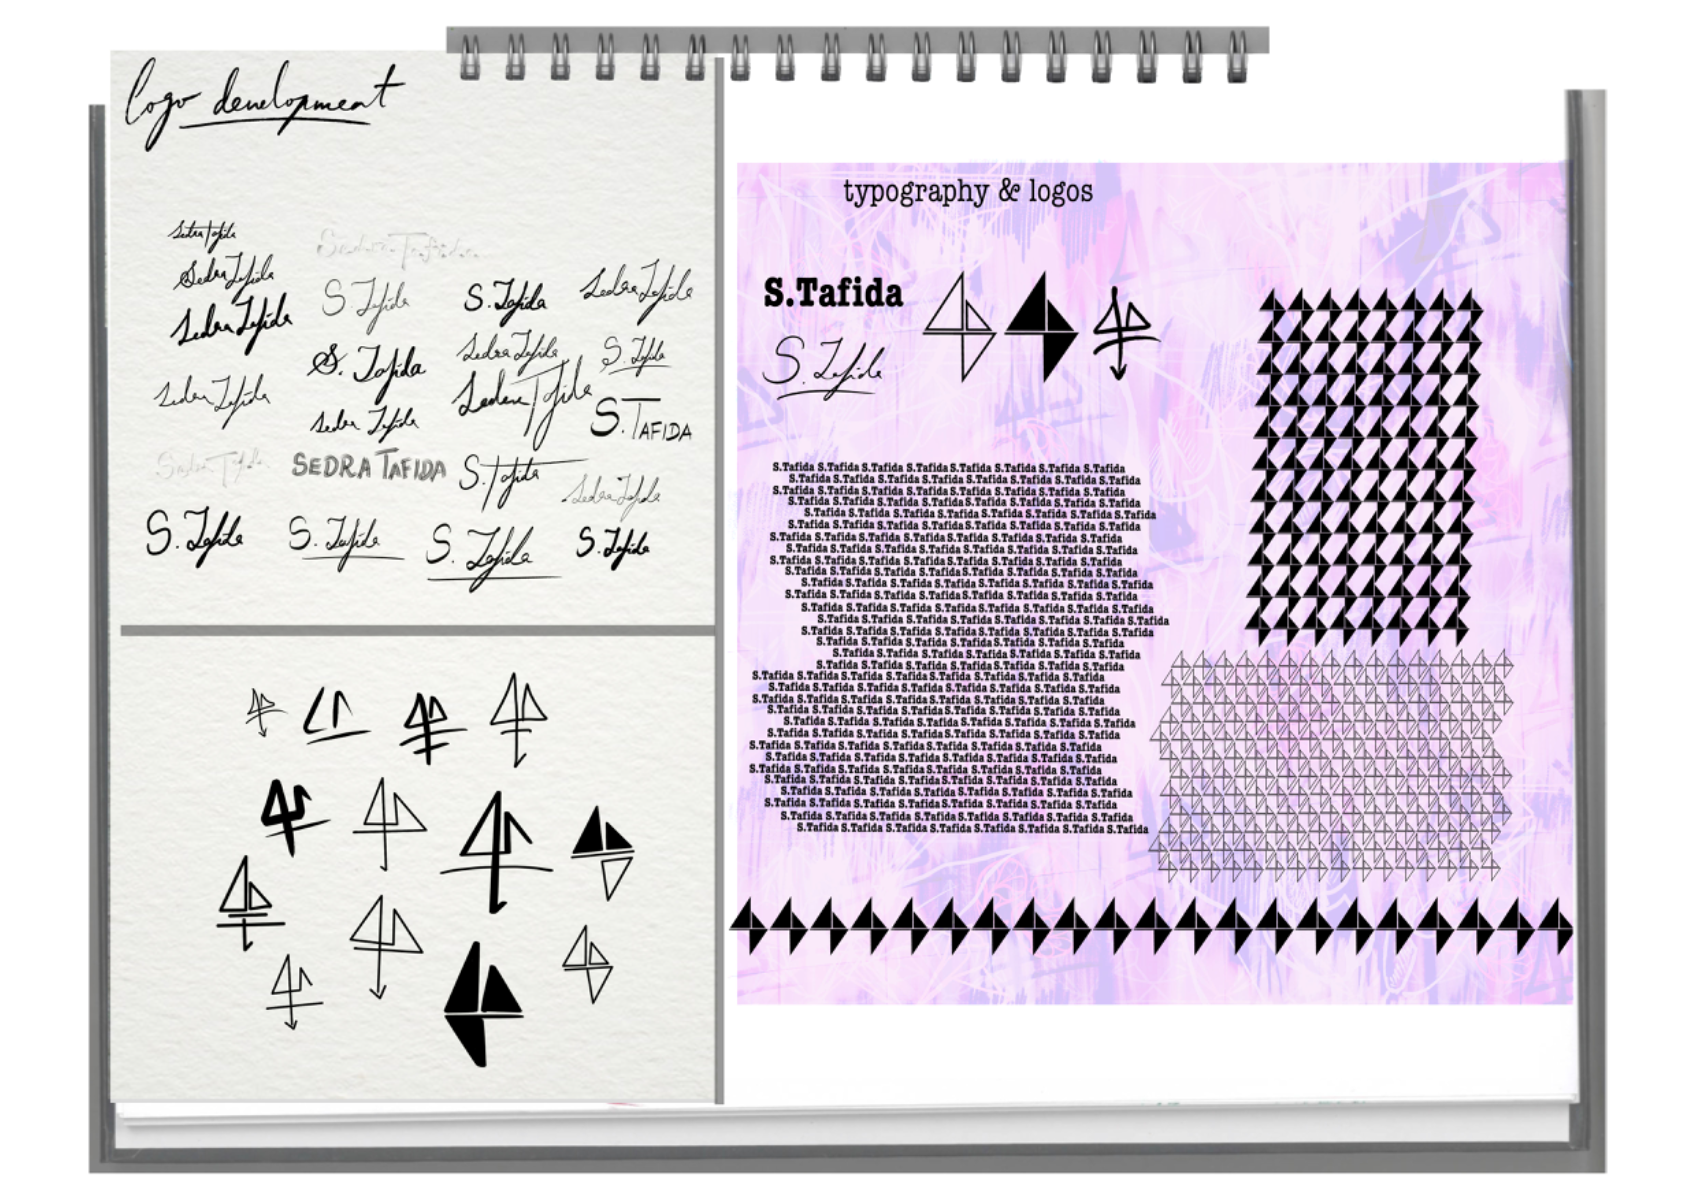 logo development
Sedra Tafida
Sedra Tafida
Sedra Tafida
Sedra Tafida
S. Tafida
S. Tafida
Sedra Tafida
Sedra Tafida
S. Tafida
Sedra Tafida
S. Tafida
Sedra Tafida
Sedra Tafida
Sedra Tafida
S. TAFIDA
Sedra Tafida
SEDRA TAFIDA
S. Tafida
Sedra Tafida
S. Tafida
S. Tafida
S. Tafida
S. Tafida
typography & logos
S.Tafida
S. Tafida
S.Tafida S.Tafida S.Tafida S.Tafida S.Tafida S.Tafida S.Tafida S.Tafida
S.Tafida S.Tafida S.Tafida S.Tafida S.Tafida S.Tafida S.Tafida S.Tafida
S.Tafida S.Tafida S.Tafida S.Tafida S.Tafida S.Tafida S.Tafida S.Tafida
S.Tafida S.Tafida S.Tafida S.Tafida S.Tafida S.Tafida S.Tafida S.Tafida
S.Tafida S.Tafida S.Tafida S.Tafida S.Tafida S.Tafida S.Tafida S.Tafida
S.Tafida S.Tafida S.Tafida S.Tafida S.Tafida S.Tafida S.Tafida S.Tafida
S.Tafida S.Tafida S.Tafida S.Tafida S.Tafida S.Tafida S.Tafida S.Tafida
S.Tafida S.Tafida S.Tafida S.Tafida S.Tafida S.Tafida S.Tafida S.Tafida
S.Tafida S.Tafida S.Tafida S.Tafida S.Tafida S.Tafida S.Tafida S.Tafida
S.Tafida S.Tafida S.Tafida S.Tafida S.Tafida S.Tafida S.Tafida S.Tafida
S.Tafida S.Tafida S.Tafida S.Tafida S.Tafida S.Tafida S.Tafida S.Tafida
S.Tafida S.Tafida S.Tafida S.Tafida S.Tafida S.Tafida S.Tafida S.Tafida
S.Tafida S.Tafida S.Tafida S.Tafida S.Tafida S.Tafida S.Tafida S.Tafida
S.Tafida S.Tafida S.Tafida S.Tafida S.Tafida S.Tafida S.Tafida S.Tafida
S.Tafida S.Tafida S.Tafida S.Tafida S.Tafida S.Tafida S.Tafida S.Tafida
S.Tafida S.Tafida S.Tafida S.Tafida S.Tafida S.Tafida S.Tafida
S.Tafida S.Tafida S.Tafida S.Tafida S.Tafida S.Tafida S.Tafida
S.Tafida S.Tafida S.Tafida S.Tafida S.Tafida S.Tafida S.Tafida
S.Tafida S.Tafida S.Tafida S.Tafida S.Tafida S.Tafida S.Tafida S.Tafida
S.Tafida S.Tafida S.Tafida S.Tafida S.Tafida S.Tafida S.Tafida S.Tafida
S.Tafida S.Tafida S.Tafida S.Tafida S.Tafida S.Tafida S.Tafida S.Tafida
S.Tafida S.Tafida S.Tafida S.Tafida S.Tafida S.Tafida S.Tafida S.Tafida
S.Tafida S.Tafida S.Tafida S.Tafida S.Tafida S.Tafida S.Tafida S.Tafida
S.Tafida S.Tafida S.Tafida S.Tafida S.Tafida S.Tafida S.Tafida S.Tafida
S.Tafida S.Tafida S.Tafida S.Tafida S.Tafida S.Tafida S.Tafida S.Tafida
S.Tafida S.Tafida S.Tafida S.Tafida S.Tafida S.Tafida S.Tafida S.Tafida
S.Tafida S.Tafida S.Tafida S.Tafida S.Tafida S.Tafida S.Tafida S.Tafida
S.Tafida S.Tafida S.Tafida S.Tafida S.Tafida S.Tafida S.Tafida S.Tafida
S.Tafida S.Tafida S.Tafida S.Tafida S.Tafida S.Tafida S.Tafida S.Tafida
S.Tafida S.Tafida S.Tafida S.Tafida S.Tafida S.Tafida S.Tafida S.Tafida
S.Tafida S.Tafida S.Tafida S.Tafida S.Tafida S.Tafida S.Tafida S.Tafida
S.Tafida S.Tafida S.Tafida S.Tafida S.Tafida S.Tafida S.Tafida S.Tafida